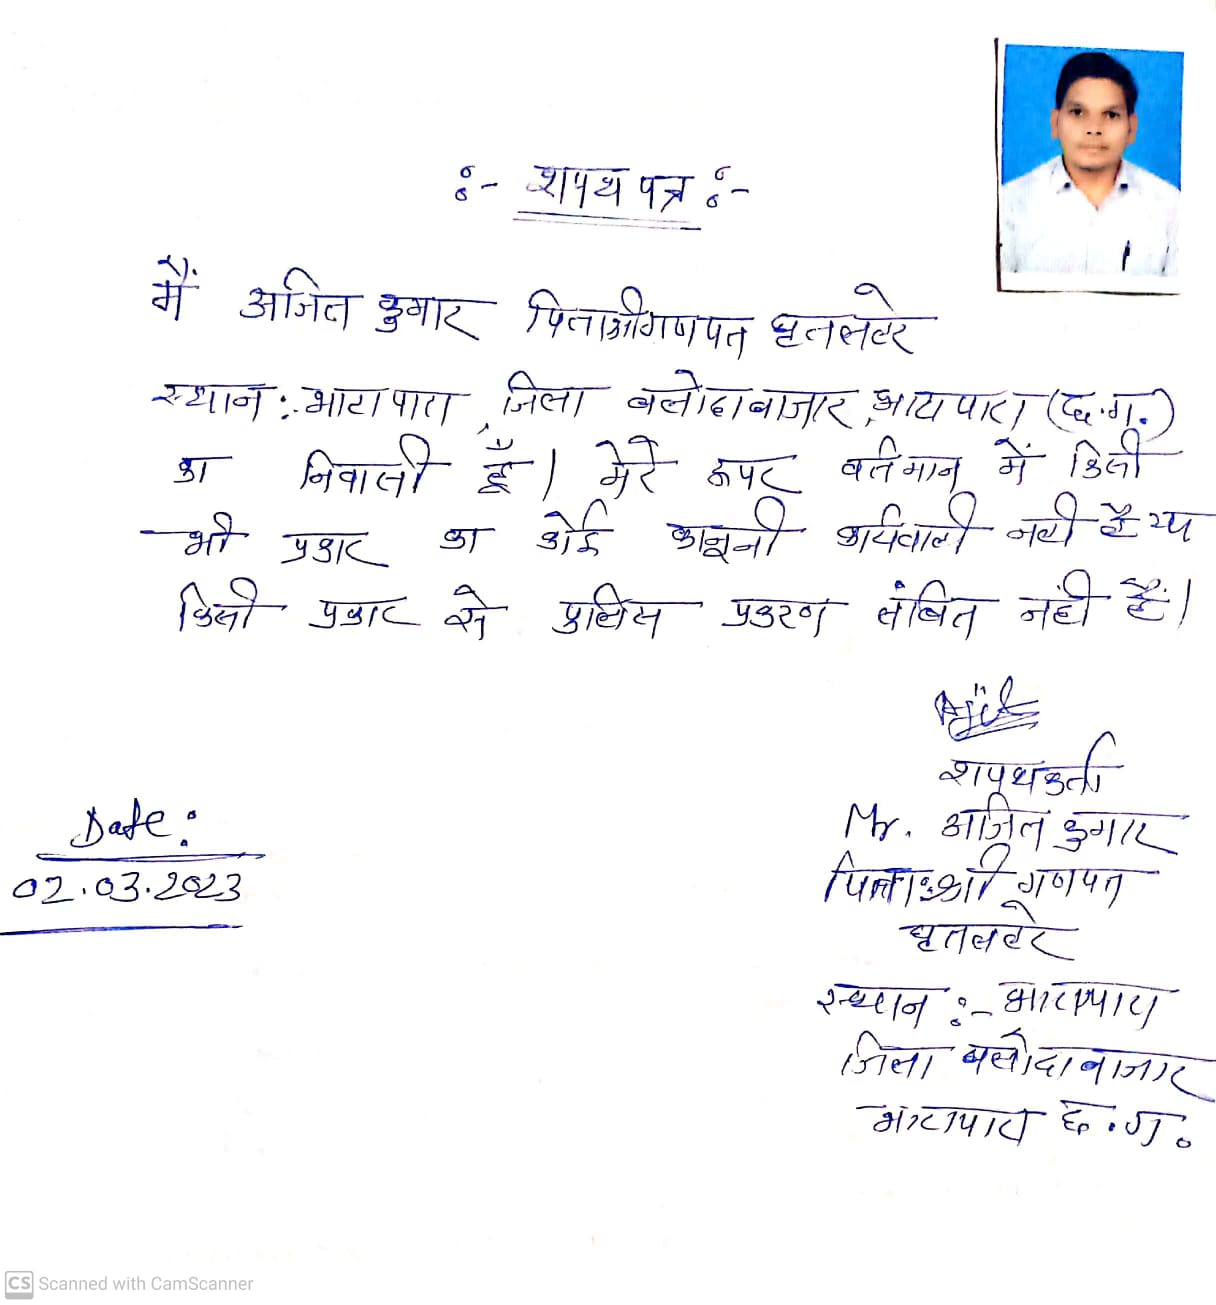 :- शपथ पत्र :-
मैं अजित कुमार पिता श्री गणपत घृतलहरे
स्थान:- भाटापारा, जिला बलौदाबाजार, भाटापारा (छ.ग.)
का निवासी हूँ। मेरे ऊपर वर्तमान में किसी
भी प्रकार का कोई कानूनी कार्यवाही नही है
किसी प्रकार से पुलिस प्रकरण लंबित नही हैं।
Ajit
शपथकर्ता
Date:
Mr. अजित कुमार
02.03.2023
पिता:श्री गणपत
घृतलहरे
स्थान :- भाटापारा
जिला बलौदाबाजार
भाटापारा छ.ग.
CS Scanned with CamScanner